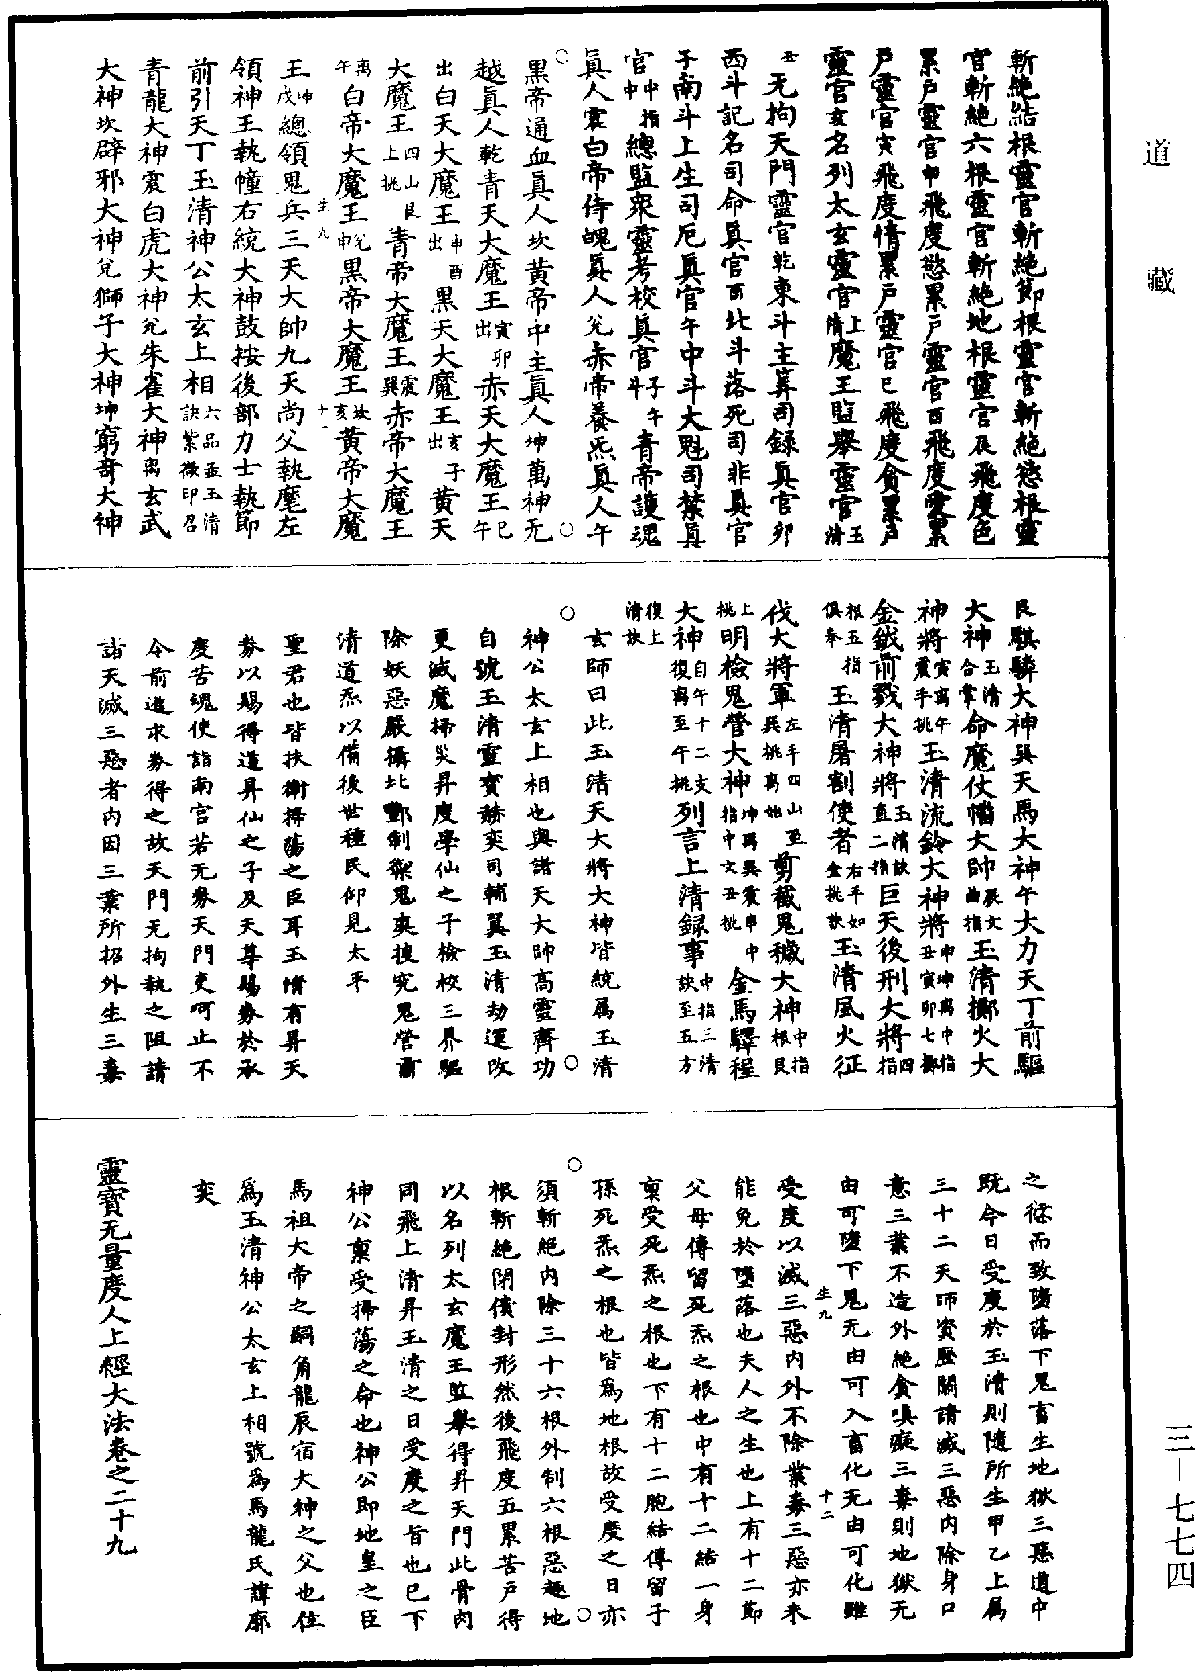 道藏
斬絶結根靈官斬絶節根靈官斬絶慾根靈
官斬絶六根靈官斬絶地根靈官辰飛度色
累户靈官申飛度慾累户靈官酉飛度愛累
户靈官寅飛度情累户靈官巳飛度貪累户
靈官亥名列太玄靈官上清魔王監舉靈官玉清
丑无拘天門靈官乾東斗主筭司録真官卯
西斗記名司命真官酉北斗落死司非真官
子南斗上生司厄真官午中斗大魁司禁真
官中指中總監衆靈考校真官子午斗青帝護魂
真人震白帝侍魄真人兊赤帝養炁真人午
黑帝通血真人坎黄帝中主真人坤萬神无
越真人乾青天大魔王寅卯出赤天大魔王巳午
出白天大魔王申酉出黑天大魔王亥子出黄天
大魔王四山上挑艮青帝大魔王震巽赤帝大魔王
离午白帝大魔王兊申黑帝大魔王坎亥黄帝大魔
王坤戌總領鬼兵三天大帥九天尚父執麾左
領神王執幢右統大神鼓按後部力士執節
前引天丁玉清神公太玄上相六品並玉清訣紫微印召
青龍大神震白虎大神兊朱雀大神离玄武
大神坎辟邪大神兊獅子大神坤窮奇大神
生九
十一
艮騏驎大神巽天馬大神午大力天丁前驅
大神玉清合掌命魔仗幡大帥辰文曲指玉清擲火大
神將寅离午震手挑玉清流鈴大神將申坤离中指丑寅卯七擲
金鉞前戮大神將玉清訣直二指巨天後刑大將四指
根五指俱奉玉清屠割使者右手如金挑訣玉清風火征
伐大將軍左手四山至巽挑离始剪截鬼穢大神中指根艮
上挑明檢鬼營大神坤酉巽震申中指中文丑挑金馬驛程
大神自午十二支復离至午挑列言上清録事中指三清訣至五方
復上清訣
玄師曰此玉清天大將大神皆統属玉清
神公太玄上相也與諸天大帥高靈齊功
自號玉清靈寳赫奕司輔翼玉清劫運改
更滅魔掃災昇度學仙之子檢校三界驅
除妖惡嚴攝北酆制禦鬼爽搜究鬼營肅
清道炁以備後世種民仰見太平
聖君也皆扶衛掃蕩之臣耳玉清有昇天
券以賜得道昇仙之子及天尊賜券於承
度苦魂使詣南宫若无券天門吏呵止不
令前進求券得之故天門无拘執之阻請
諸天滅三惡者内因三業所招外生三毒
之徐而致墮落下鬼畜生地獄三惡道中
既今日受度於玉清則隨所生甲乙上属
三十二天師資歷關請滅三惡内除身口
意三業不造外絶貪嗔癡三毒則地獄无
由可墮下鬼无由可入畜化无由可化雖
受度以滅三惡内外不除業毒三惡亦未
能免於墮落也夫人之生也上有十二節
父母傳留死炁之根也中有十二結一身
禀受死炁之根也下有十二胞結傳留子
孫死炁之根也皆爲地根故受度之日亦
須斬絶内除三十六根外制六根惡趣地
根斬絶閉債封形然後飛度五累苦户得
以名列太玄魔王監舉得昇天門此骨肉
同飛上清昇玉清之日受度之旨也已下
神公禀受掃蕩之命也神公即地皇之臣
馬祖大帝之嗣角龍辰宿大神之父也位
爲玉清神公太玄上相號爲馬龍氏諱廓
奕
生九
十二
靈寳无量度人上經大法卷之二十九
三－七七四